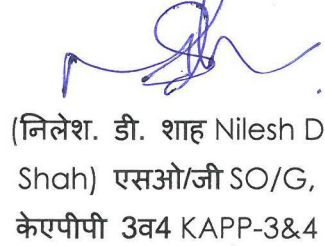 (निलेश. डी. शाह Nilesh D
Shah) एसओ/जी SO/G,
केएपीपी 3व4 KAPP-3&4